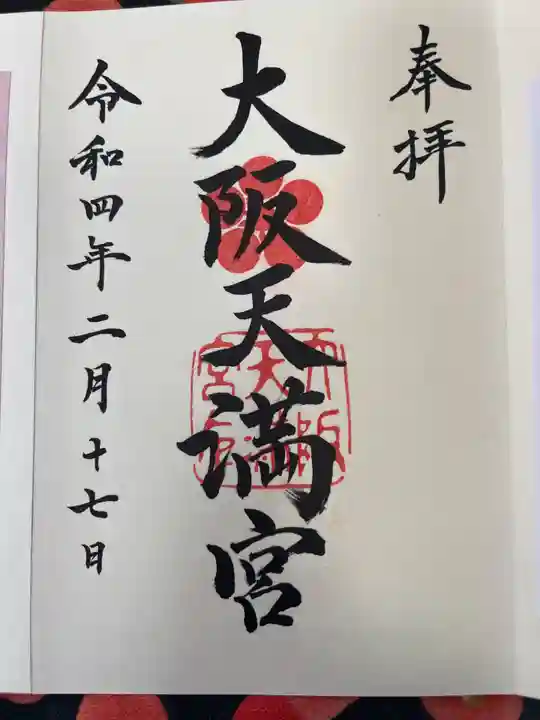 奉拝
大阪天満宮
令和四年二月十七日